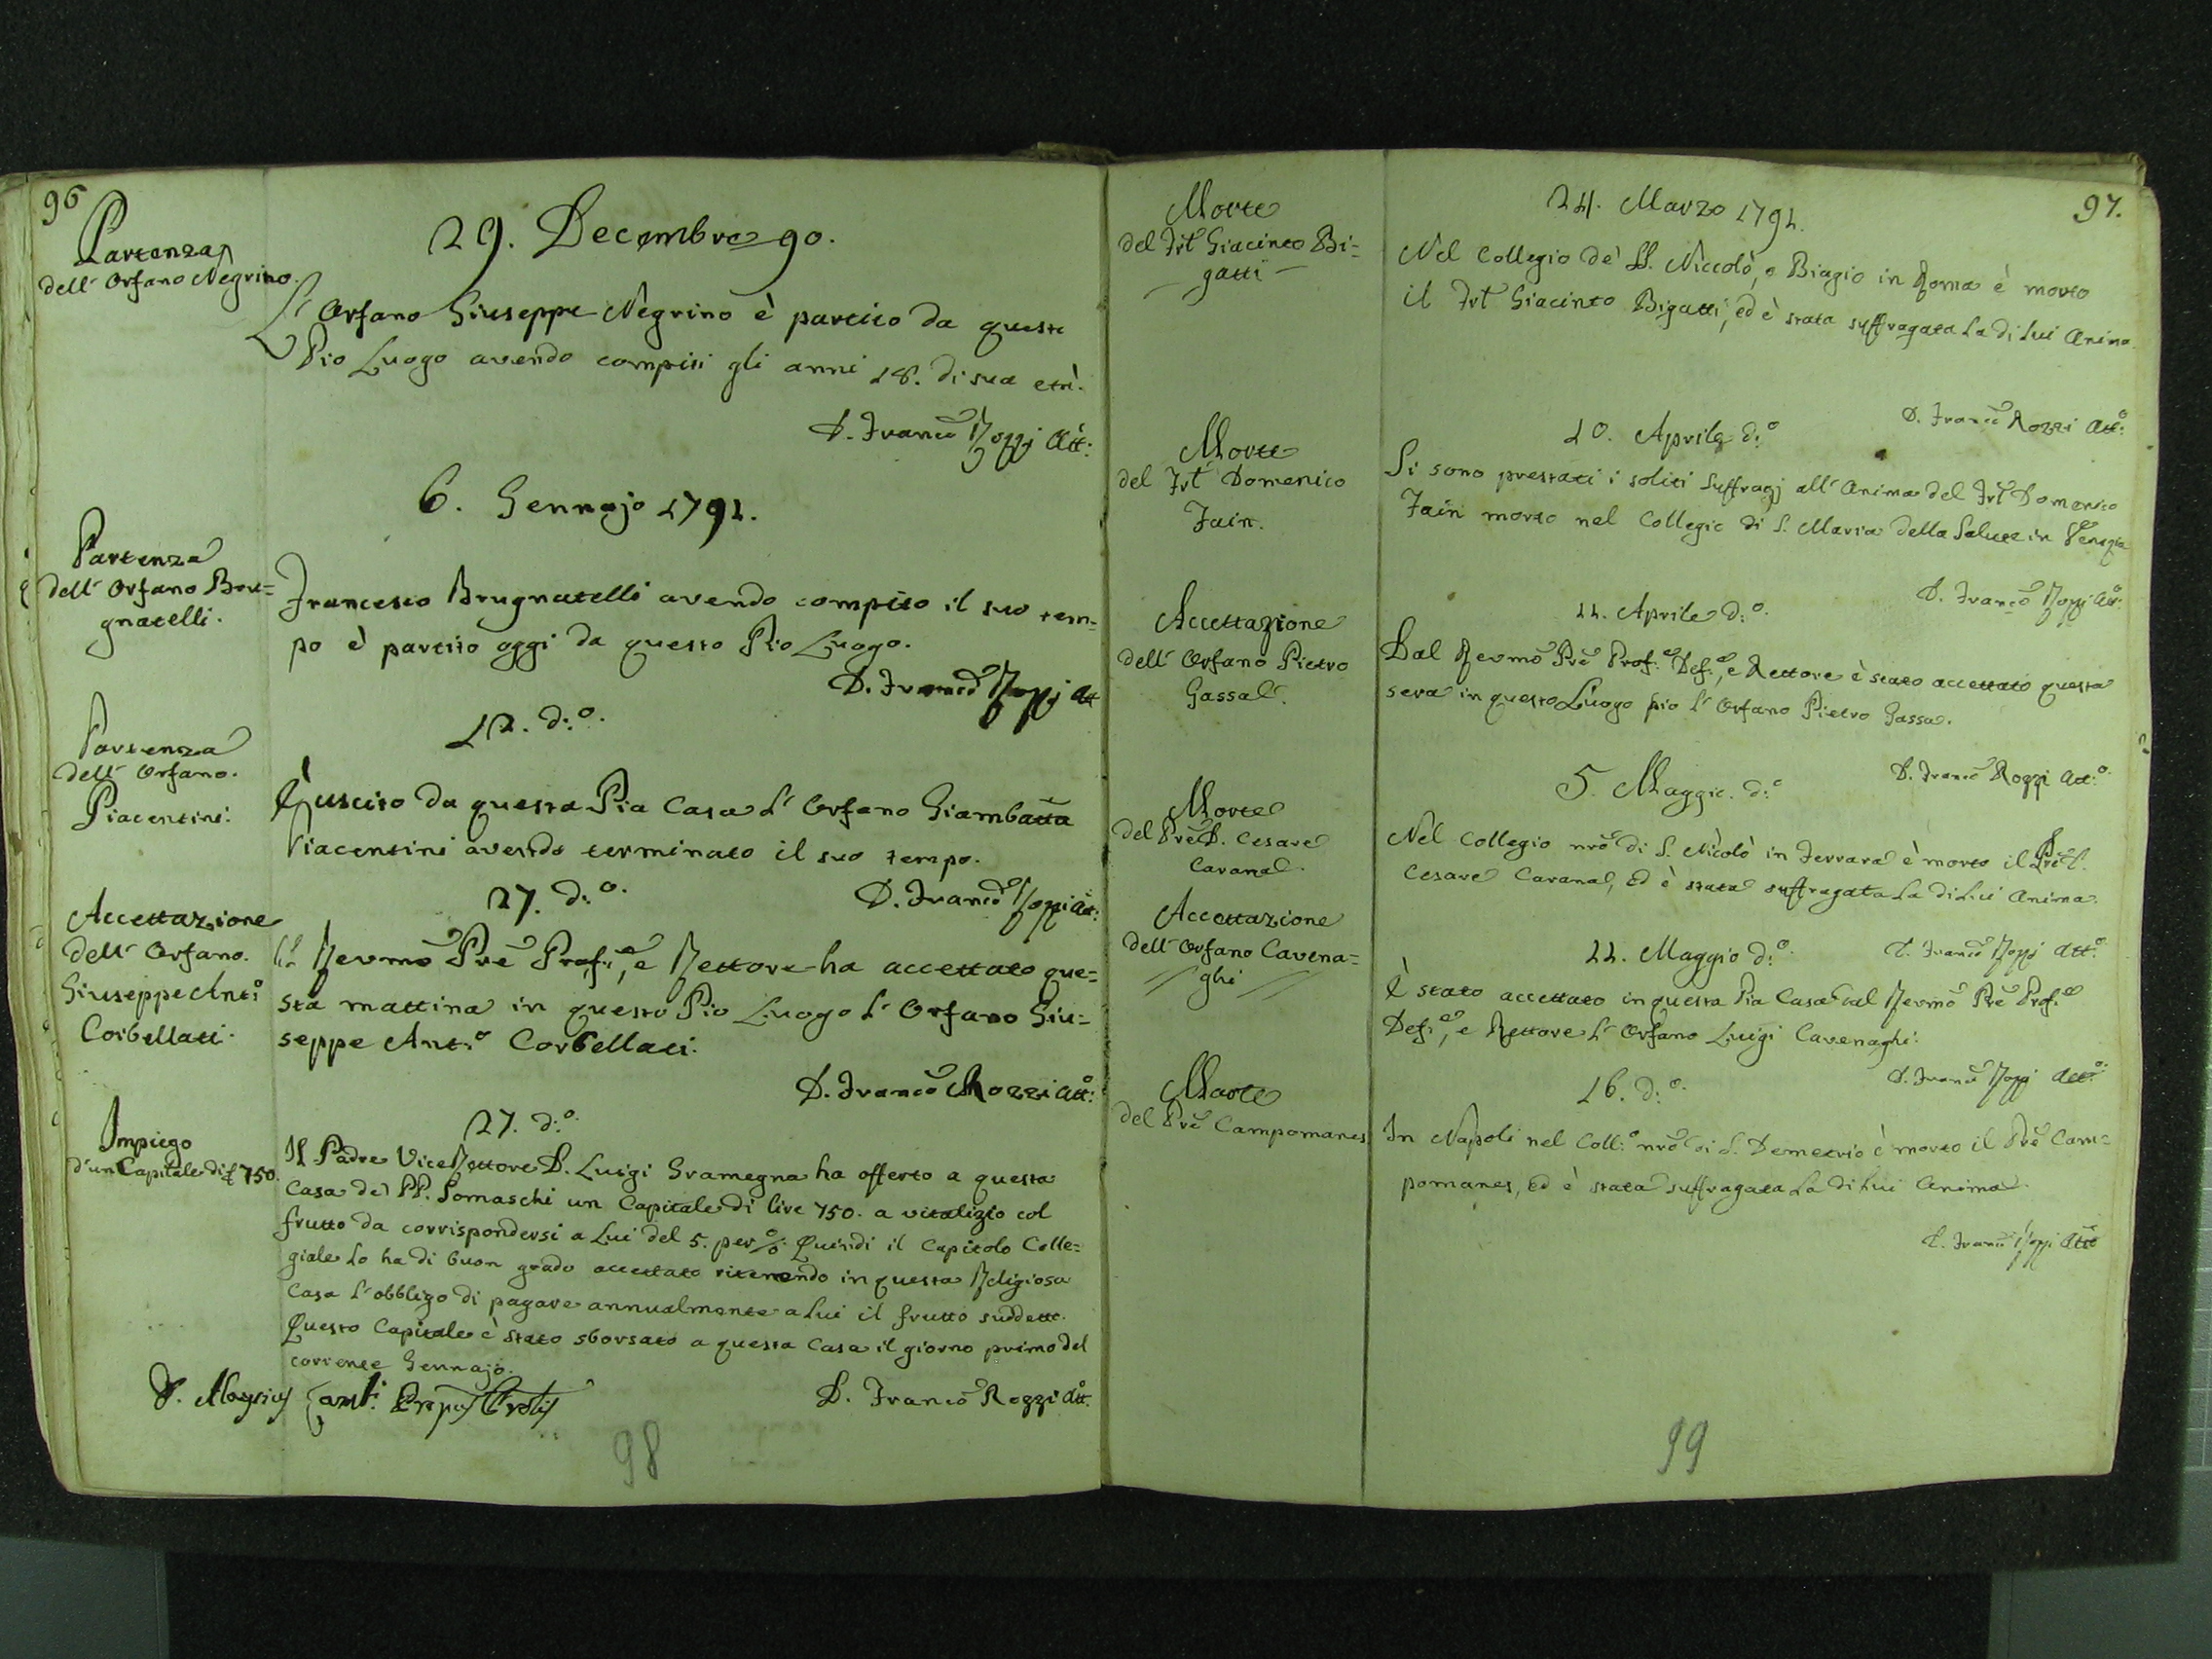 96
Partenza
dell' Orfano Negrino.
29. Decembre 90.
L' Orfano Giuseppe Negrino è partito da questo
Pio Luogo avendo compiti gli anni 18. di sua età.
D. Franco Rozzi Att:
6. Gennajo 1791.
Partenza
dell' Orfano Bru=
gnatelli.
Francesco Brugnatelli avendo compito il suo tem=
po è partito oggi da questo Pio Luogo.
D. Franco Rozzi Att
12. d:o.
Partenza
dell' Orfano.
Piacentini.
È uscito da questa Pia Casa l' Orfano Giambatta
Piacentini avendo terminato il suo tempo.
D. Franco Rozzi Att:
27. d:o.
Accettazione
dell' Orfano.
Giuseppe Ant:o
Corbellati.
Il Revmo Pre Prof:e, e Rettore ha accettato que=
sta mattina in questo Pio Luogo l' Orfano Giu=
seppe Ant:o Corbellati.
D. Franco Rozzi Att:o
27. d:o.
Impiego
d'un Capitale di £ 750.
Il Padre ViceRettore D. Luigi Gramegna ha offerto a questa
Casa de' PP. Somaschi un Capitale di lire 750. a vitalizio col
frutto da corrispondersi a Lui del 5. per %: Quindi il Capitolo Colle=
giale lo ha di buon grado accettato ritenendo in questa Religiosa
Casa l' obbligo di pagare annualmente a Lui il frutto suddetto.
Questo Capitale è stato sborsato a questa Casa il giorno primo del
corrente Gennajo.
D. Franco Rozzi Att.
D. Aloysius
98
97.
Morte
del Frt Giacinto Bi=
gatti
24. Marzo 1791.
Nel Collegio de' SS. Niccolò, e Biagio in Roma è morto
il Frt Giacinto Bigatti, ed è stata suffragata la di lui Anima.
D. Franco Rozzi Att:o
Morte
del Frt Domenico
Fain.
10. Aprile d:o
Si sono prestati i soliti suffragj all' Anima del Frt Domenico
Fain morto nel Collegio di S. Maria della Salute in Venezia
D. Franco Rozzi Att:o
Accettazione
dell' Orfano Pietro
Gassa.
11. Aprile d:o.
Dal Revmo Pre Prof:e Def:e, e Rettore è stato accettato questa
sera in questo Luogo pio l' Orfano Pietro Gassa.
D. Franco Rozzi Att:o
Morte
del Pre D. Cesare
Carana.
5. Maggio. d:o
Nel Collegio nro di S. Nicolò in Ferrara è morto il Pre D.
Cesare Carana, ed è stata suffragata la di Lui Anima.
D. Franco Rozzi Att:o
Accettazione
dell' Orfano Cavena=
ghi
11. Maggio d:o.
È stato accettato in questa Pia Casa dal Revmo Pre Prof:e
Def:e, e Rettore l' Orfano Luigi Cavenaghi.
D. Franco Rozzi Att:o
Morte
del Pre Campomanes
16. d:o.
In Napoli nel Coll:o nro di S. Demetrio è morto il Pre Cam=
pomanes, ed è stata suffragata la di lui Anima.
D. Franco Rozzi Att:o
99